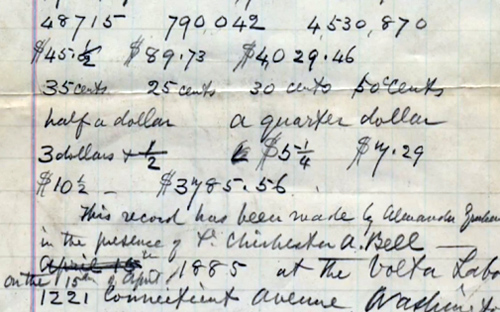 48715 790,042 4,530,870
$45.½ $89.73 $4029.46
35 cents 25 cents 30 cents 50 cents
half a dollar a quarter dollar
3 dollars + ½ $5¼ $7.29
$10½ - $3785.56.
This record has been made by Alexander Graham
in the presence of Dr. Chichester A. Bell —
April 15th 1885 at the Volta Labo
on the 15th of April,
1221 Connecticut Avenue Washingto